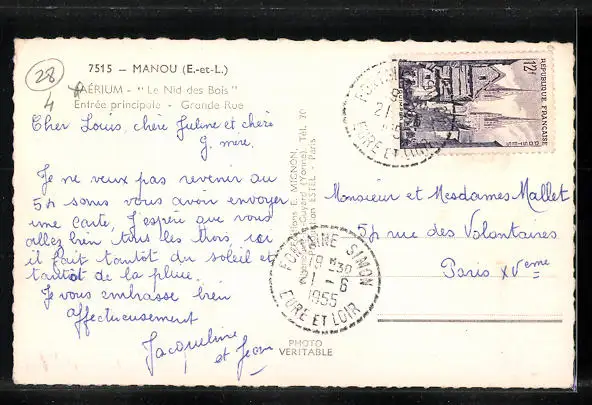 28
4
7515 — MANOU (E.-et-L.)
AÉRIUM - " Le Nid des Bois "
Entrée principale - Grande Rue
Cher Louis, chère Juline et chère
g. mère.
Je ne veux pas revenir au
54 sans vous avoir envoyer
une carte, J'espère que vous
allez bien tous les trois, ici
il fait tantôt du soleil et
tantôt de la pluie.
Je vous embrasse bien
affectueusement
Jacqueline
et Jean
E. MIGNON,
(Yonne). Tél. 70
ESTEL - Paris
PHOTO
VERITABLE
12F
REPUBLIQUE FRANÇAISE
POSTES
EURE ET LOIR
FONTAINE SIMON
19 H 30
1 - 6
1955
EURE ET LOIR
Monsieur et Mesdames Mallet
54 rue des Volontaires
Paris XVeme